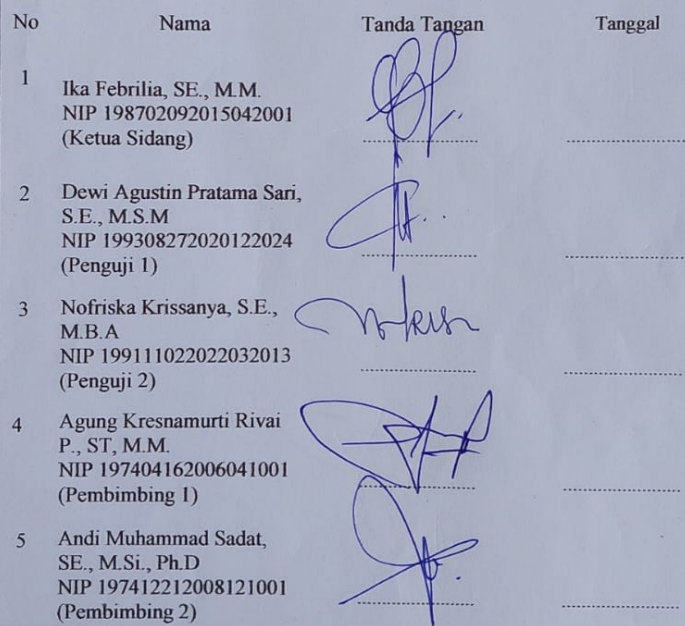 No Nama Tanda Tangan Tanggal
1 Ika Febrilia, SE., M.M.
NIP 198702092015042001
(Ketua Sidang)
2 Dewi Agustin Pratama Sari,
S.E., M.S.M
NIP 199308272020122024
(Penguji 1)
3 Nofriska Krissanya, S.E.,
M.B.A
NIP 199111022022032013
(Penguji 2)
4 Agung Kresnamurti Rivai
P., ST, M.M.
NIP 197404162006041001
(Pembimbing 1)
5 Andi Muhammad Sadat,
SE., M.Si., Ph.D
NIP 197412212008121001
(Pembimbing 2)